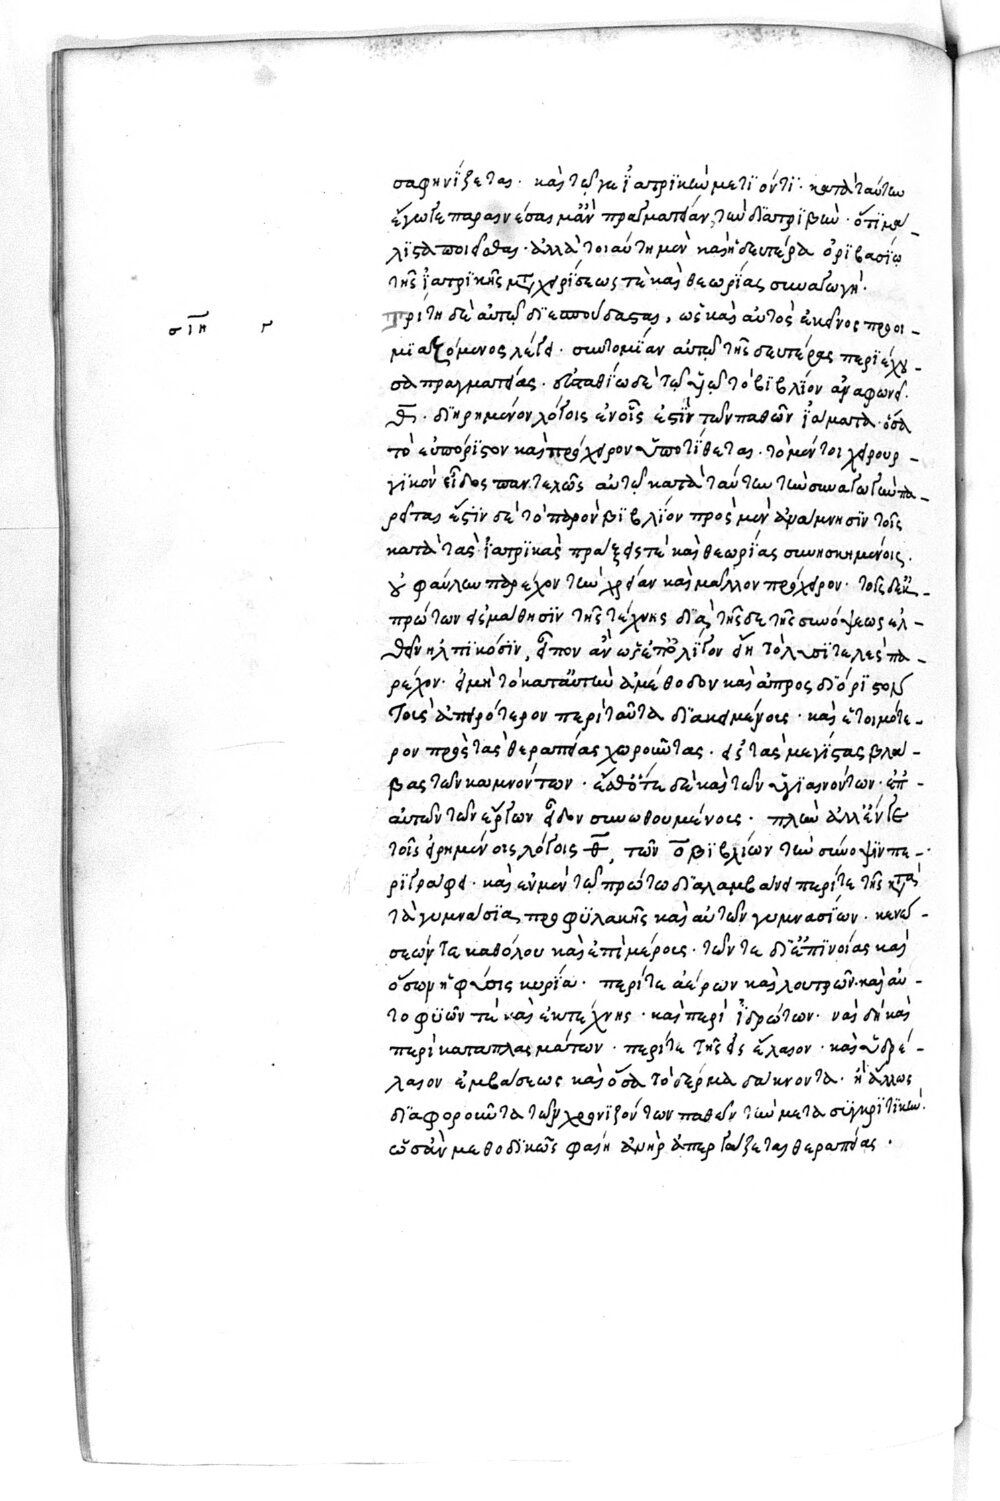 σαφηνίζεται· καὶ τῷ γε ἰατρικὴν μετιόντι· κατὰ ταύτην
ἔγωγε παραινέσαιμ' ἂν πραγματείαν, τὴν διατριβὴν ὅτι μά-
λιστα ποιεῖσθαι· ἀλλὰ τοιαύτη μὲν καὶ ἡ δευτέρα ὀριβασίῳ
τῆς ἰατρικῆς μεταχειρίσεώς τε καὶ θεωρίας συναγωγή·
σιη γ
τρίτη δὲ αὐτῷ διεσπούδασται, ὡς καὶ αὐτὸς ἐκεῖνος προοι-
μιαζόμενος λέγει· συντομίαν αὐτῷ τῆς δευτέρας περιέχου-
σα πραγματείας· εὐσταθίῳ δὲ τῷ υἱῷ τὸ βιβλίον ἀναφωνεῖ.
θ· διῃρημένον λόγοις ἐν οἷς ἐστὶν τῶν παθῶν ἰάματα ὅσα
τὸ εὐπόριστον καὶ πρόχειρον ὑποτίθεται· τὸ μέντοι χειρουρ-
γικὸν εἶδος παντελῶς αὐτῷ κατὰ ταύτην τὴν συναγωγὴν πα-
ρεῖται ἔστιν δὲ τὸ παρὸν βιβλίον πρὸς μὲν ἀνάμνησιν τοῖς
κατὰ τὰς ἰατρικὰς πράξεις τε καὶ θεωρίας συνησκημένοις.
οὐ φαύλην παρέχον τὴν χρείαν καὶ μᾶλλον πρόχειρον· τοῖς δὲ ἐκ
πρώτων εἰς μάθησιν τῆς τέχνης διὰ τῆσδε τῆς συνόψεως ἐλ-
θεῖν ἠλπικόσιν, εἶπον ἂν ὡς ἐπ' ὀλίγον εἴη τὸ λυσιτελὲς πα-
ρέχον· εἰ μὴ τὸ κατ' αὐτὴν ἀμέθοδον καὶ ἀπροσδιόριστον
τοῖς ἀπειρότερον περὶ ταῦτα διακειμένοις· καὶ ἑτοιμότε-
ρον πρὸς τὰς θεραπείας χωροῦντας· εἰς τὰς μεγίστας βλά-
βας τῶν καμνόντων· ἔσθ' ὅτε δὲ καὶ τῶν ὑγιαινόντων· ἐπ'
αὐτῶν τῶν ἔργων εἶδον συνωθουμένοις· πλὴν ἀλλ' ἔν γε
τοῖς εἰρημένοις λόγοις θ, τῶν ο βιβλίων τὴν σύνοψιν πε-
ριγράφει· καὶ ἐν μὲν τῷ πρώτῳ διαλαμβάνει περί τε τῆς κατὰ
τὰ γυμνάσια, προφυλακῆς καὶ αὐτῶν γυμνασίων· κενώ-
σεών τε καθόλου καὶ ἐπιμέρους· τῶν τε δι' ἐπινοίας καὶ
ὅσων ἡ φύσις κυρία· περί τε ἀέρων καὶ λουτρῶν καὶ αὐ-
τοφυῶν τε καὶ ἐκ τέχνης· καὶ περὶ ἱδρώτων· ναὶ δὴ καὶ
περὶ καταπλασμάτων· περί τε τῆς εἰς ἔλαιον· καὶ ὑδρέ-
λαιον ἐμβάσεως καὶ ὅσα τὸ δέρμα δάκνοντα· ἢ ἄλλως
διαφοροῦντα τῶν χρονιζόντων παθῶν τὴν μετασυγκριτικὴν.
ὡς ἂν μεθοδικῶς φαίη ἀνὴρ ἀπεργάζεται θεραπείας·